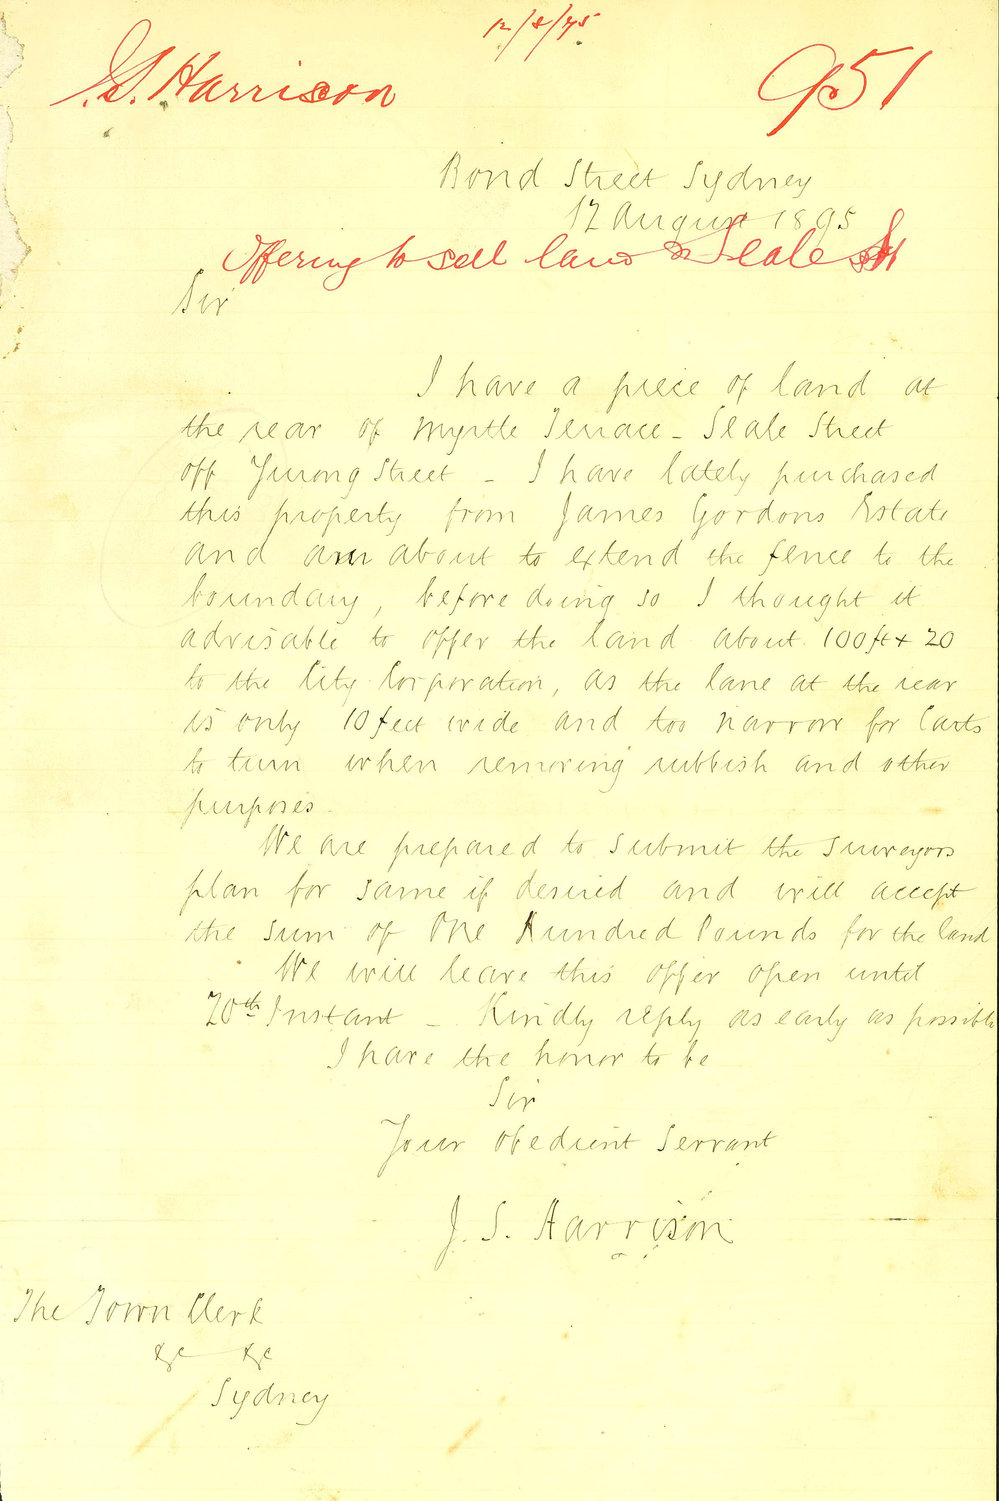 12/8/95
J.S. Harrison
951
Bond Street Sydney
12 August 1895
Offering to sell land in Seale St
Sir
I have a piece of land at
the rear of Myrtle Terrace - Seale Street
off Yurong Street - I have lately purchased
this property from James Gordons Estate
and am about to extend the fence to the
boundary, before doing so I thought it
advisable to offer the land about 100ft x 20
to the City Corporation, as the lane at the rear
is only 10 feet wide and too narrow for Carts
to turn when removing rubbish and other
purposes.
We are prepared to submit the surveyors
plan for same if desired and will accept
the sum of One Hundred Pounds for the land
We will leave this offer open until
20th Instant - Kindly reply as early as possible
I have the honor to be
Sir
Your obedient servant
J. S. Harrison
The Town Clerk
&c &c
Sydney